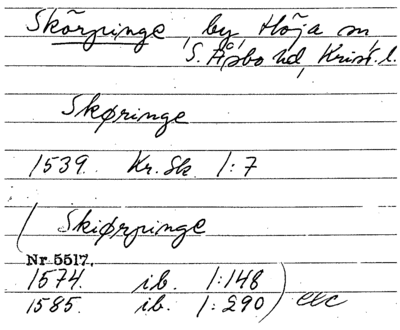 Skörpinge, by, Höja sn,
S. Åsbo hd, Krist. l.
Skøringe
1539. Kr. Sk 1:7
( Skiørpinge
Nr 5517.
1574. ib. 1:148 )
1585. ib. 1:290 ) etc